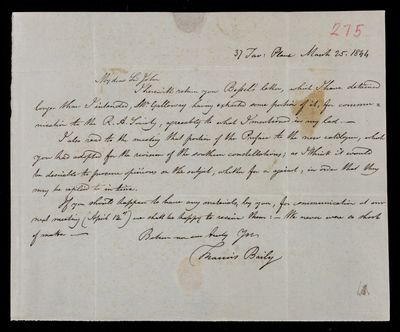 275
37 Tav: Place March 25. 1844
My dear Sir John
I herewith return you Bessel's letter, which I have detained
longer than I intended, Mr Galloway having extracted some portion of it, for commu=
nication to the R. A. Society, agreeably to what I mentioned in my last.—
I also read to the meeting that portion of the Preface to the new catalogue, which
you had adopted for the revision of the southern constellations; as I think it would
be desirable to procure opinions on the subject, whether for or against, in order that they
may be in time.
If you should happen to have any materials, by you, for communication at our
next meeting (April 12th) we shall be happy to receive them:— We never were so short
of matter.—
Believe me ever truly Yrs
Francis Baily